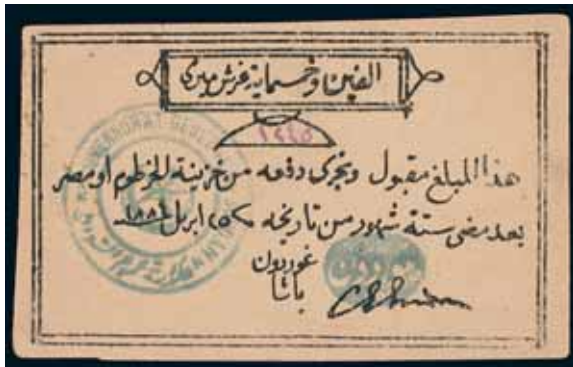 الفين وخمسماية غرش ميرى
١٢٤٥
هذا المبلغ مقبول ويجرى دفعه من خزينة الخرطوم او مصر
بعد مضى ستة شهور من تاريخه ٢٥ ابريل ١٨٨٤
غوردون
باشا